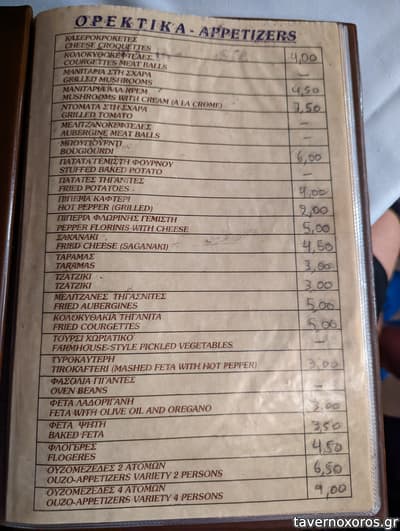 ΟΡΕΚΤΙΚΑ - APPETIZERS
ΚΑΣΕΡΟΚΡΟΚΕΤΕΣ
CHEESE CROQUETTES
ΚΟΛΟΚΥΘΟΚΕΦΤΕΔΕΣ 4,00
COURGETTES MEAT BALLS
ΜΑΝΙΤΑΡΙΑ ΣΤΗ ΣΧΑΡΑ —
GRILLED MUSHROOMS
ΜΑΝΙΤΑΡΙΑ ΑΛΑ ΚΡΕΜ 4,50
MUSHROOMS WITH CREAM (A LA CROME)
ΝΤΟΜΑΤΑ ΣΤΗ ΣΧΑΡΑ
GRILLED TOMATO
ΜΕΛΙΤΖΑΝΟΚΕΦΤΕΔΕΣ —
AUBERGINE MEAT BALLS
ΜΠΟΥΓΙΟΥΡΝΤΙ
BOUGIOURDI 6,00
ΠΑΤΑΤΑ ΓΕΜΙΣΤΗ ΦΟΥΡΝΟΥ
STUFFED BAKED POTATO —
ΠΑΤΑΤΕΣ ΤΗΓΑΝΙΤΕΣ
FRIED POTATOES
ΠΙΠΕΡΙΑ ΚΑΦΤΕΡΗ
HOT PEPPER (GRILLED)
ΠΙΠΕΡΙΑ ΦΛΩΡΙΝΗΣ ΓΕΜΙΣΤΗ
PEPPER FLORINIS WITH CHEESE 5,00
ΣΑΚΑΝΑΚΙ
FRIED CHEESE (SAGANAKI) 4,50
ΤΑΡΑΜΑΣ
TARAMAS 3,00
ΤΖΑΤΖΙΚΙ
TZATZIKI 3,00
ΜΕΛΙΤΖΑΝΕΣ ΤΗΓΑΝΙΤΕΣ
FRIED AUBERGINES 5,00
ΚΟΛΟΚΥΘΑΚΙΑ ΤΗΓΑΝΙΤΑ
FRIED COURGETTES 5,00
ΤΟΥΡΣΙ ΧΩΡΙΑΤΙΚΟ
FARMHOUSE-STYLE PICKLED VEGETABLES —
ΤΥΡΟΚΑΥΤΕΡΗ
TIROKAFTERI (MASHED FETA WITH HOT PEPPER) 3,00
ΦΑΣΟΛΙΑ ΓΙΓΑΝΤΕΣ
OVEN BEANS —
ΦΕΤΑ ΛΑΔΟΡΙΓΑΝΗ
FETA WITH OLIVE OIL AND OREGANO
ΦΕΤΑ ΨΗΤΗ
BAKED FETA 3,50
ΦΛΟΓΕΡΕΣ
FLOGERES 4,50
ΟΥΖΟΜΕΖΕΔΕΣ 2 ΑΤΟΜΩΝ
OUZO-APPETIZERS VARIETY 2 PERSONS 6,50
ΟΥΖΟΜΕΖΕΔΕΣ 4 ΑΤΟΜΩΝ
OUZO-APPETIZERS VARIETY 4 PERSONS 9,00
tavernoxoros.gr